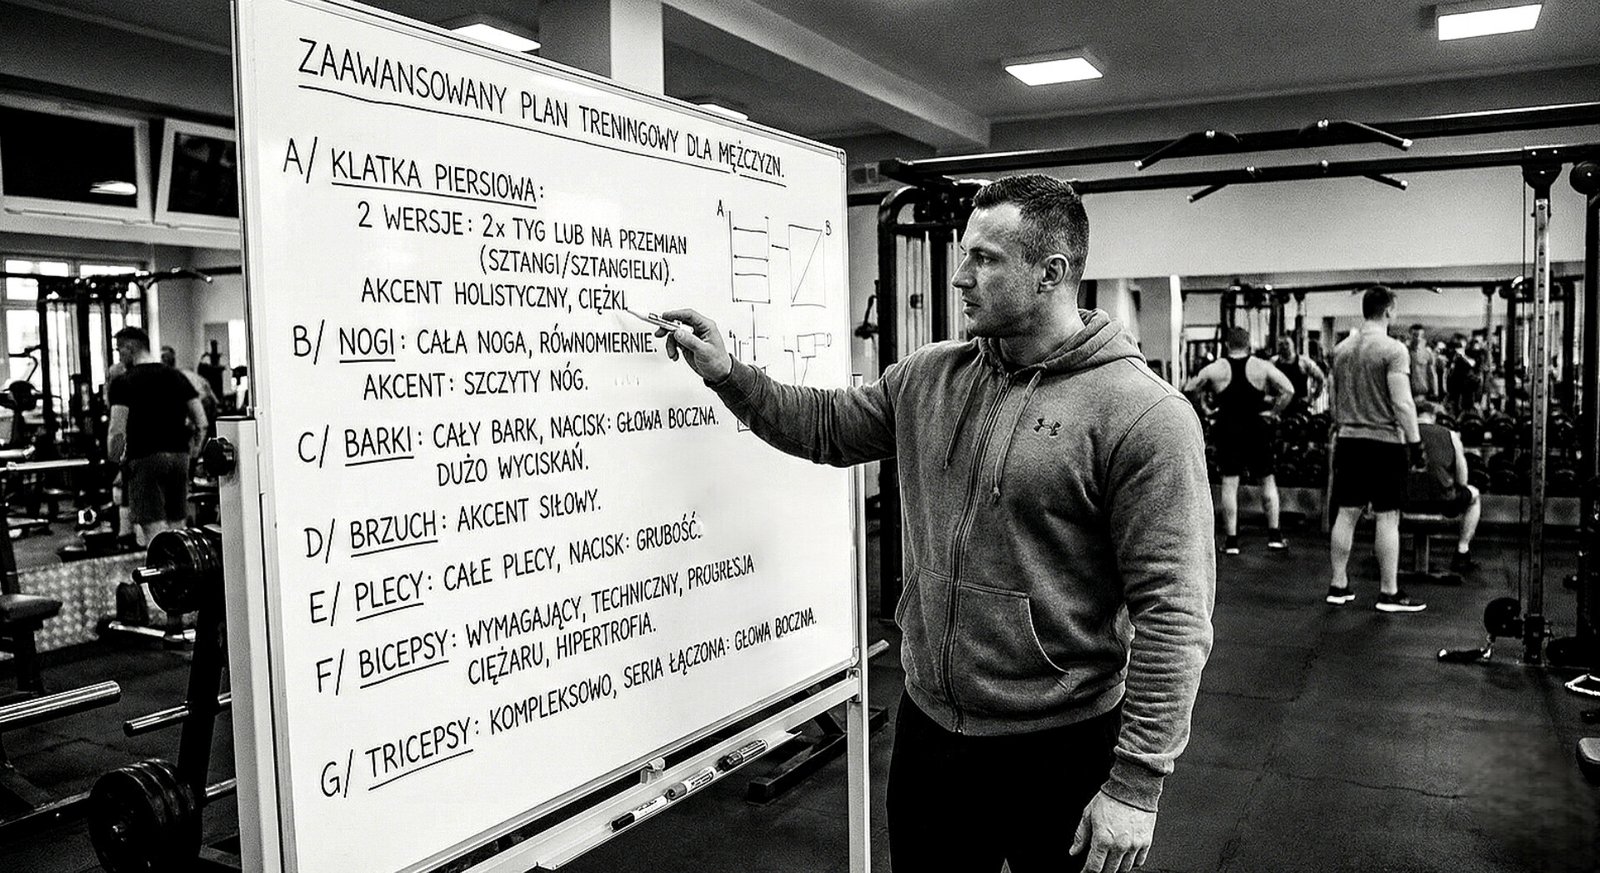 ZAAWANSOWANY PLAN TRENINGOWY DLA MĘŻCZYZN.
A/ KLATKA PIERSIOWA:
2 WERSJE: 2x TYG LUB NA PRZEMIAN
(SZTANGI/SZTANGIELKI).
AKCENT HOLISTYCZNY, CIĘŻKI
B/ NOGI: CAŁA NOGA, RÓWNOMIERNIE.
AKCENT: SZCZYTY NÓG.
C/ BARKI: CAŁY BARK, NACISK: GŁOWA BOCZNA.
DUŻO WYCISKAŃ.
D/ BRZUCH: AKCENT SIŁOWY.
E/ PLECY: CAŁE PLECY, NACISK: GRUBOŚĆ.
F/ BICEPSY: WYMAGAJĄCY, TECHNICZNY, PROGRESJA
CIĘŻARU, HIPERTROFIA.
G/ TRICEPSY: KOMPLEKSOWO, SERIA ŁĄCZONA: GŁOWA BOCZNA.
A
B